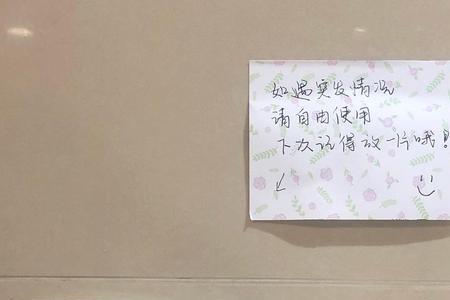 如遇突发情况
请自由使用
下次记得放一片哦!